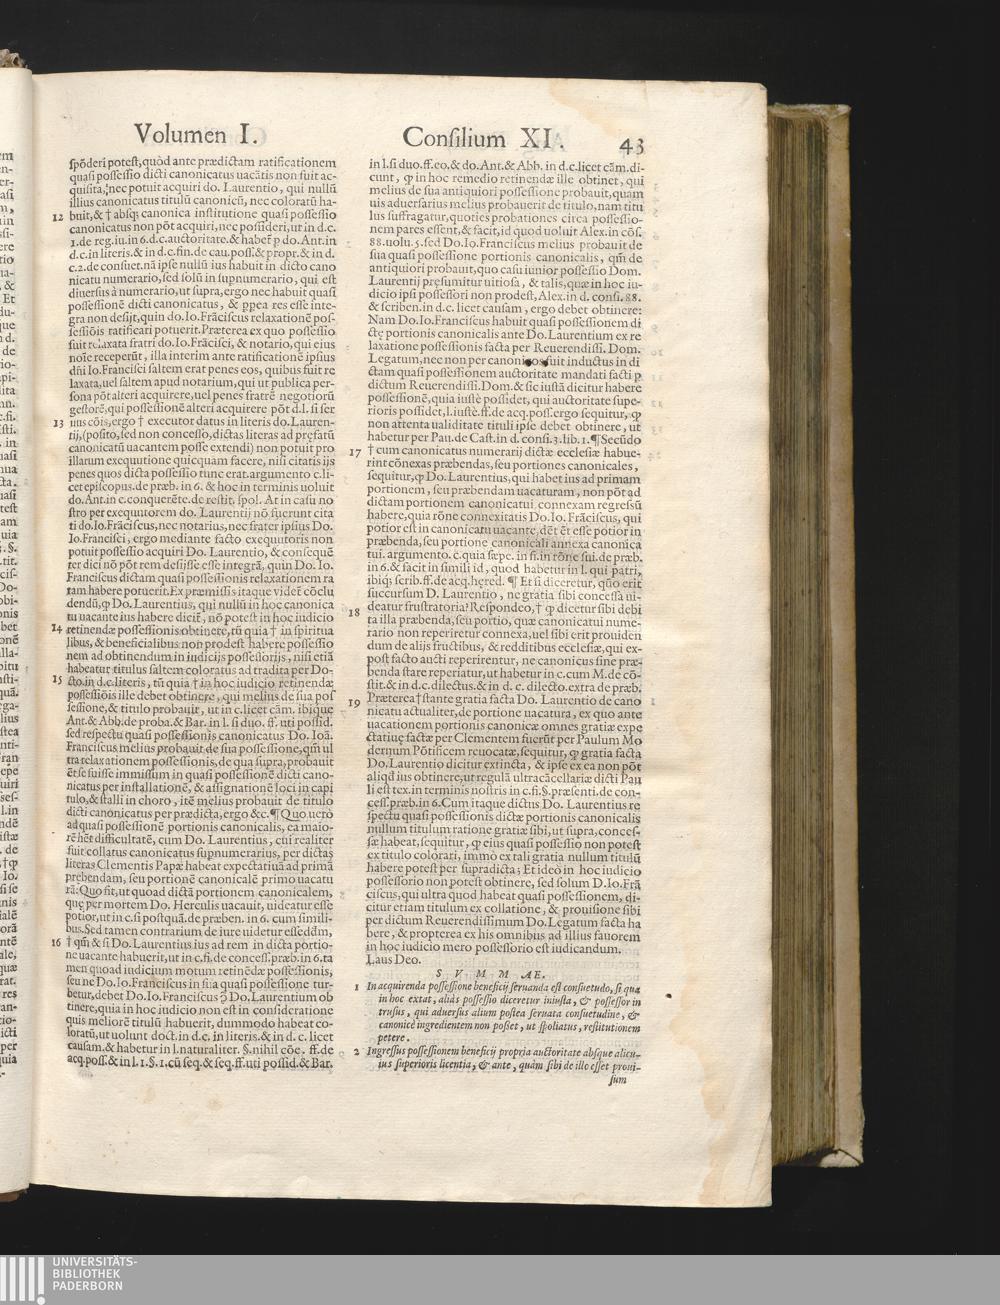 Volumen I.
Consilium XI.
43
spõderi potest, quòd ante prædictam ratificationem
quasi possessio dicti canonicatus uacãtis non fuit ac-
quisita, nec potuit acquiri do. Laurentio, qui nullũ
illius canonicatus titulũ canonicũ, nec coloratũ ha-
12 buit, & † absq; canonica institutione quasi possessio
canonicatus non põt acquiri, nec possideri, ut in d.c.
1. de reg. iu. in 6. d. c. auctoritate. & habet̃ p do. Ant. in
d.c. in literis. & in d.c. fin. de cau. poss. & propr. & in d.
c. 2. de consuet. nã ipse nullũ ius habuit in dicto cano
nicatu numerario, sed solũ in supnumerario, qui est
diuersus à numerario, ut supra, ergo nec habuit quasi
possessionẽ dicti canonicatus, & ppea res esse inte-
gra non desijt, quin do. Io. Frãciscus relaxationẽ pos-
sessiõis ratificati potuerit. Præterea ex quo possessio
fuit relaxata fratri do. Io. Frãcisci, & notario, qui eius
noĩe receperũt, illa interim ante ratificationẽ ipsius
dñi Io. Francisci saltem erat penes eos, quibus fuit re
laxata, uel saltem apud notarium, qui ut publica per-
sona põt alteri acquirere, uel penes fratrẽ negotiorũ
gestorẽ, qui possessionẽ alteri acquirere põt d.l. si ser
13 uus cõis, ergo † executor datus in literis do. Lauren-
tij, (posito, sed non concesso, dictas literas ad pręfatũ
canonicatũ uacantem posse extendi) non potuit pro
illarum exequutione quicquam facere, nisi citatis ijs
penes quos dicta possessio tunc erat. argumento c. li-
cet episcopus. de præb. in 6. & hoc in terminis uoluit
do. Ant. in c. conquerẽte. de restit. spol. At in casu no
stro per exequutorem do. Laurentij nõ fuerunt cita
ti do. Io. Frãciscus, nec notarius, nec frater ipsius Do.
Io. Francisci, ergo mediante facto exequutoris non
potuit possessio acquiri Do. Laurentio, & consequẽ
ter dici nõ põt rem desijsse esse integrã, quin Do. Io.
Franciscus dictam quasi possessionis relaxationem ra
tam habere potuerit. Ex præmissis itaque videt̃ cõclu
dendũ, q Do. Laurentius, qui nullũ in hoc canonica
tu uacante ius habere dicit̃, nõ potest in hoc iudicio
14 retinendæ possessionis obtinere, tũ quia † in spiritua
libus, & beneficialibus non prodest habere possessio
nem ad obtinendum in iudicijs possessorijs, nisi etiã
habeatur titulus saltem coloratus ad tradita per Do-
15 cto. in d.c. literis, tũ quia † in hoc iudicio retinendæ
possessiõis ille debet obtinere, qui melius de sua pos
sessione, & titulo probauit, ut in c. licet cãm. ibique
Ant. & Abb. de proba. & Bar. in l. si duo. ff. uti possid.
sed respectu quasi possessionis canonicatus Do. Ioã.
Franciscus melius probauit de sua possessione, qm̃ ul
tra relaxationem possessionis, de qua supra, probauit
ẽt se fuisse immissum in quasi possessionẽ dicti cano-
nicatus per installationẽ, & assignationẽ loci in capi
tulo, & stalli in choro, itẽ melius probauit de titulo
dicti canonicatus per prædicta, ergo &c. ¶ Quo uerò
ad quasi possessionẽ portionis canonicalis, ea maio-
rẽ hẽt difficultatẽ, cum Do. Laurentius, cui realiter
fuit collatus canonicatus supnumerarius, per dictas
literas Clementis Papæ habeat expectatiuã ad primã
prebendam, seu portionẽ canonicalẽ primo uacatu
rã: Quo fit, ut quoad dictã portionem canonicalem,
quę per mortem Do. Herculis uacauit, uideatur esse
potior, ut in c. si postquã. de præben. in 6. cum simili-
bus. Sed tamen contrarium de iure uidetur esseddm̃,
16 † qm̃ & si Do. Laurentius ius ad rem in dicta portio-
ne uacante habuerit, ut in c. fi. de concess. præb. in 6. ta
men quoad iudicium motum retinẽdæ possessionis,
seu ne Do. Io. Franciscus in sua quasi possessione tur-
betur, debet Do. Io. Franciscus Do. Laurentium ob
tinere, quia in hoc iudicio non est in consideratione
quis meliorẽ titulũ habuerit, dummodo habeat co-
loratũ, ut uolunt doct. in d.c. in literis. & in d. c. licet
causam. & habetur in l. naturaliter. §. nihil cõe. ff. de
acq. poss. & in l. 1. §. 1. cũ seq. & seq. ff. uti possid. & Bar.
in l. si duo. ff. eo. & do. Ant. & Abb. in d.c. licet cãm. di-
cunt, q in hoc remedio retinendæ ille obtinet, qui
melius de sua antiquiori possessione probauit, quàm
uis aduersarius melius probauerit de titulo, nam titu
lus suffragatur, quoties probationes circa possessio-
nem pares essent, & facit, id quod uoluit Alex. in cõs.
88. uolu. 5. sed Do. Io. Franciscus melius probauit de
sua quasi possessione portionis canonicalis, qm̃ de
antiquiori probauit, quo casu iunior possessio Dom.
Laurentij pręsumitur uitiosa, & talis, quæ in hoc iu-
dicio ipsi possessori non prodest, Alex. in d. consi. 88.
& scriben. in d.c. licet causam, ergo debet obtinere:
Nam Do. Io. Franciscus habuit quasi possessionem di
ctę portionis canonicalis ante Do. Laurentium ex re
laxatione possessionis facta per Reuerendiss. Dom.
Legatum, nec non per fuit inductus in di
ctam quasi possessionem auctoritate mandati facti p
dictum Reuerendiss. Dom. & sic iustã dicitur habere
possessionẽ, quia iustè possidet, qui auctoritate supe-
rioris possidet, l. iustè. ff. de acq. poss. ergo sequitur, q
non attenta ualiditate tituli ipse debet obtinere, ut
habetur per Pau. de Cast. in d. consi. 3. lib. 1. ¶ Secũdo
17 † cum canonicatus numerarij dictæ ecclesiæ habue-
rint cõnexas præbendas, seu portiones canonicales,
sequitur, q Do. Laurentius, qui habet ius ad primam
portionem, seu præbendam uacaturam, non põt ad
dictam portionem canonicatui connexam regressũ
habere, quia rõne connexitatis Do. Io. Frãciscus, qui
potior est in canonicatu uacante, dẽt ẽt esse potior in
præbenda, seu portione canonicali annexa canonica
tui. argumento. c. quia sæpe. in fi. in rõne sui. de præb.
in 6. & facit in simili id, quod habetur in l. qui patri,
ibiq; scrib. ff. de acq. hęred. ¶ Et si diceretur, quõ erit
succursum D. Laurentio, ne gratia sibi concessa ui-
18 deatur frustratoria? Respondeo, † q dicetur sibi debi
ta illa præbenda, seu portio, quæ canonicatui nume-
rario non reperiretur connexa, uel sibi erit prouiden
dum de alijs fructibus, & redditibus ecclesiæ, qui ex-
post facto aucti reperirentur, ne canonicus sine præ-
benda stare reperiatur, ut habetur in c. cum M. de cõ-
stit. & in d.c. dilectus. & in d. c. dilecto. extra de præb.
19 Præterea † stante gratia facta Do. Laurentio de cano
nicatu actualiter, de portione uacatura, ex quo ante
uacationem portionis canonicæ omnes gratiæ expe
ctatiuę factæ per Clementem fuerũt per Paulum Mo
dernum Põtificem reuocatæ, sequitur, q gratia facta
Do. Laurentio dicitur extincta, & ipse ex ea non põt
aliqd ius obtinere, ut regulã ultracãcellariæ dicti Pau
li est tex. in terminis nostris in c. fi. §. præsenti. de con-
cess. præb. in 6. Cum itaque dictus Do. Laurentius re
spectu quasi possessionis dictæ portionis canonicalis
nullum titulum ratione gratiæ sibi, ut supra, conces-
sæ habeat, sequitur, q eius quasi possessio non potest
ex titulo colorari, immo ex tali gratia nullum titulũ
habere potest per supradicta; Et ideò in hoc iudicio
possessorio non potest obtinere, sed solum D. Io. Frã
ciscus, qui ultra quod habeat quasi possessionem, di-
citur etiam titulum ex collatione, & prouisione sibi
per dictum Reuerendissimum Do. Legatum facta ha
bere, & propterea ex his omnibus ad illius fauorem
in hoc iudicio mero possessorio est iudicandum.
Laus Deo.
S V M M AE.
1 In acquirenda possessione beneficij seruanda est consuetudo, si qua
in hoc extat, aliàs possessio diceretur iniusta, & possessor in
trusus, qui aduersus alium postea seruata consuetudine, &
canonicè ingredientem non posset, ut spoliatus, restitutionem
petere.
2 Ingressus possessionem beneficij propria auctoritate absque alicu-
ius superioris licentia, & ante, quàm sibi de illo esset proui-
sum
UNIVERSITÄTS-
BIBLIOTHEK
PADERBORN